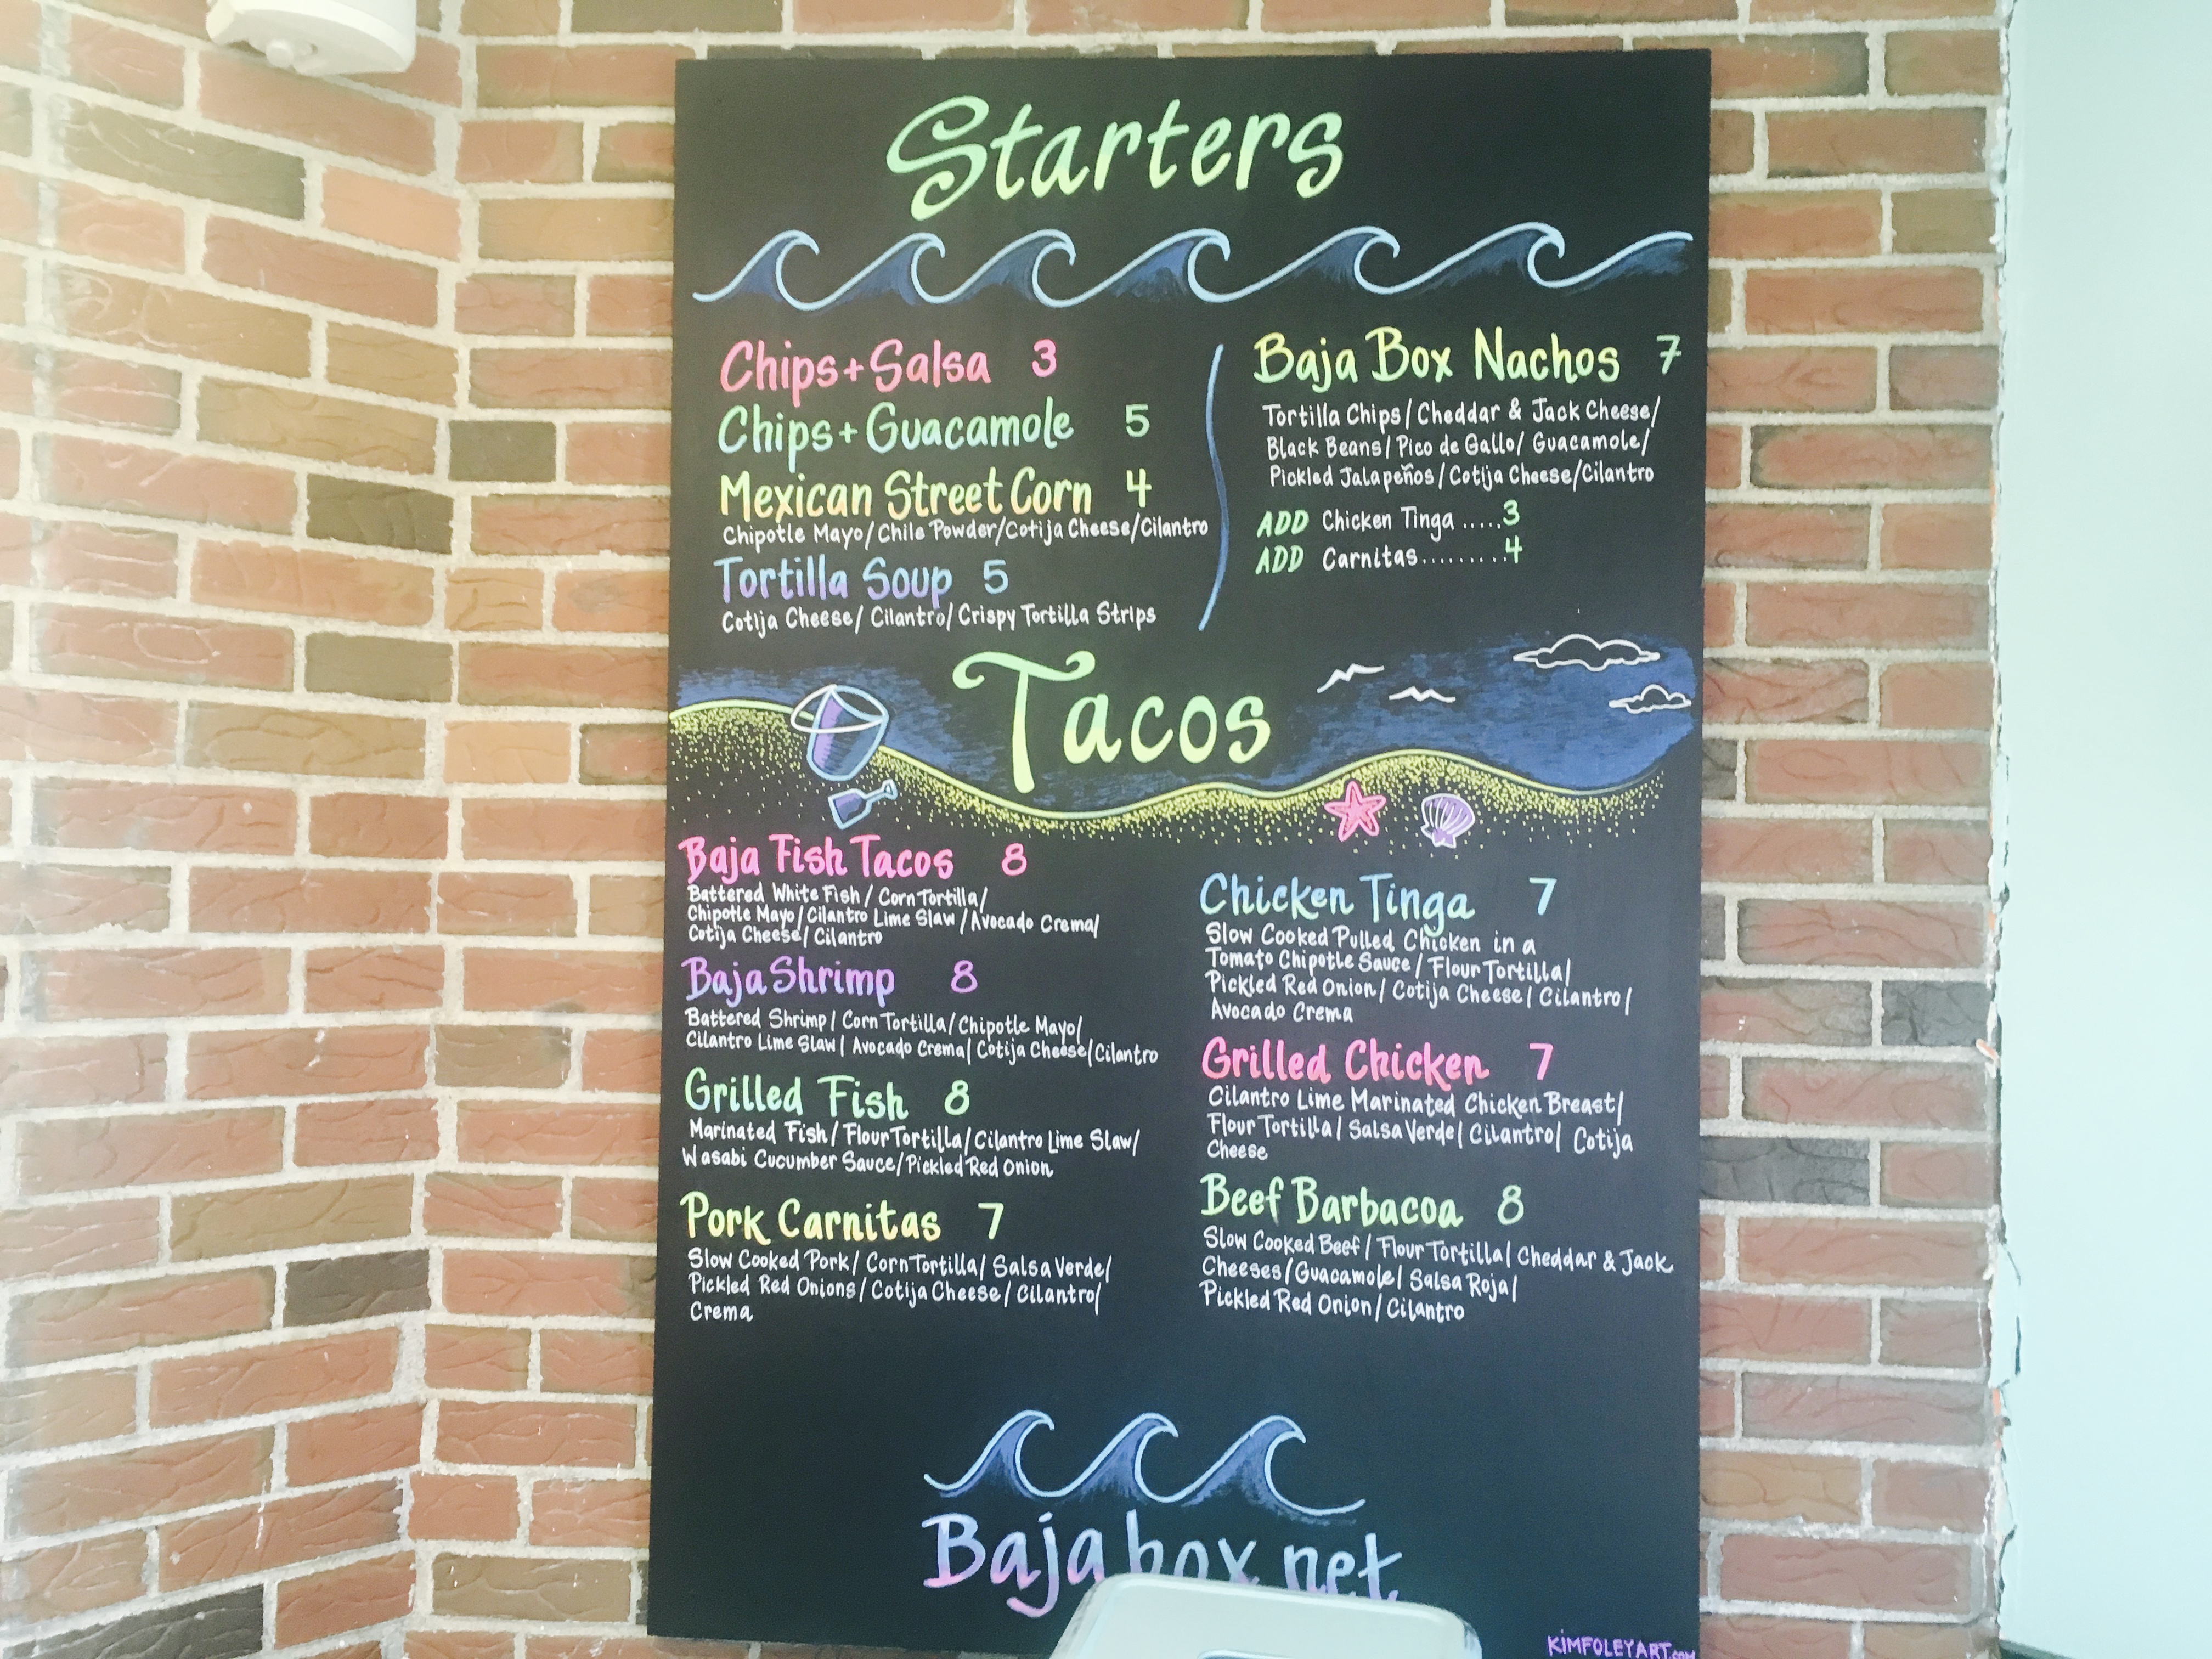 Starters
Chips + Salsa 3
Chips + Guacamole 5
Mexican Street Corn 4
Chipotle Mayo/Chile Powder/Cotija Cheese/Cilantro
Tortilla Soup 5
Cotija Cheese/Cilantro/Crispy Tortilla Strips
Baja Box Nachos 7
Tortilla Chips/Cheddar & Jack Cheese/
Black Beans/Pico de Gallo/Guacamole/
Pickled Jalapeños/Cotija Cheese/Cilantro
ADD Chicken Tinga .....3
ADD Carnitas.........4
Tacos
Baja Fish Tacos 8
Battered White Fish/Corn Tortilla/
Chipotle Mayo/Cilantro Lime Slaw/Avocado Crema/
Cotija Cheese/Cilantro
Baja Shrimp 8
Battered Shrimp/Corn Tortilla/Chipotle Mayo/
Cilantro Lime Slaw/Avocado Crema/Cotija Cheese/Cilantro
Grilled Fish 8
Marinated Fish/Flour Tortilla/Cilantro Lime Slaw/
Wasabi Cucumber Sauce/Pickled Red Onion
Pork Carnitas 7
Slow Cooked Pork/Corn Tortilla/Salsa Verde/
Pickled Red Onions/Cotija Cheese/Cilantro/
Crema
Chicken Tinga 7
Slow Cooked Pulled Chicken in a
Tomato Chipotle Sauce/Flour Tortilla/
Pickled Red Onion/Cotija Cheese/Cilantro/
Avocado Crema
Grilled Chicken 7
Cilantro Lime Marinated Chicken Breast/
Flour Tortilla/Salsa Verde/Cilantro/Cotija
Cheese
Beef Barbacoa 8
Slow Cooked Beef/Flour Tortilla/Cheddar & Jack
Cheeses/Guacamole/Salsa Roja/
Pickled Red Onion/Cilantro
Bajabox.net
KIMFOLEYART.com